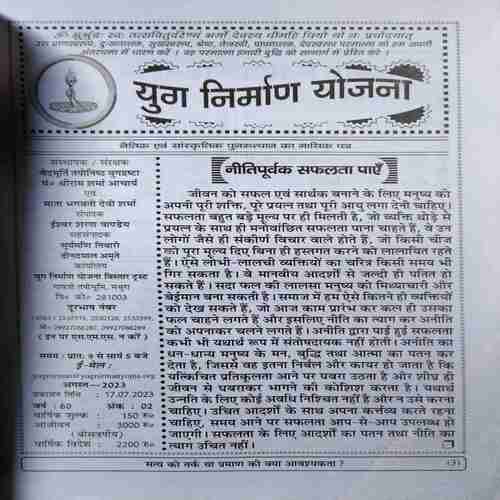 ॐ भूर्भुवः स्वः तत्सवितुर्वरेण्यं भर्गो देवस्य धीमहि धियो यो नः प्रचोदयात्
उस प्राणस्वरूप, दुःखनाशक, सुखस्वरूप, श्रेष्ठ, तेजस्वी, पापनाशक, देवस्वरूप परमात्मा को हम अपनी
अंतरात्मा में धारण करें। वह परमात्मा हमारी बुद्धि को सन्मार्ग में प्रेरित करे।
युग निर्माण योजना
नैतिक एवं सांस्कृतिक पुनरुत्थान का मासिक पत्र
संस्थापक / संरक्षक
वेदमूर्ति तपोनिष्ठ युगद्रष्टा
पं० श्रीराम शर्मा आचार्य
एवं
माता भगवती देवी शर्मा
संपादक
ईश्वर शरण पाण्डेय
सहसंपादक
सूर्यमणि तिवारी
दीनदयाल अमृते
कार्यालय
युग निर्माण योजना विस्तार ट्रस्ट
गायत्री तपोभूमि, मथुरा
पिन कोड 281003
दूरभाष नंबर
मो० 09927086287, 09927086289
( इन पर एस.एम.एस. न करें )
समय : प्रातः 9 से सायं 5 बजे
ई-मेल :
अगस्त—2023
प्रकाशन तिथि : 17.07.2023
वर्ष : 60 अंक : 02
वार्षिक शुल्क : 150 रु०
आजीवन : 3000 रु०
(बीसवर्षीय)
वार्षिक विदेश : 2200 रु०
नीतिपूर्वक सफलता पाएँ
जीवन को सफल एवं सार्थक बनाने के लिए मनुष्य को
अपनी पूरी शक्ति, पूरे प्रयत्न तथा पूरी आयु लगा देनी चाहिए।
सफलता बहुत बड़े मूल्य पर ही मिलती है, जो व्यक्ति थोड़े से
प्रयत्न के साथ ही मनोवांछित सफलता पाना चाहते हैं, वे उन
लोगों जैसे ही संकीर्ण विचार वाले होते हैं, जो किसी चीज
को पूरा मूल्य दिए बिना ही हस्तगत करने को लालायित रहते
हैं। ऐसे लोभी-लालची व्यक्तियों का चरित्र किसी समय भी
गिर सकता है। वे मानवीय आदर्शों से जल्दी ही पतित हो
सकते हैं। सदा फल की लालसा मनुष्य को मिथ्याचारी और
बेईमान बना सकती है। समाज में हम ऐसे कितने ही व्यक्तियों
को देख सकते हैं, जो आज काम प्रारंभ कर कल ही उसका
फल चाहने लगते हैं और इसलिए नीति का त्याग कर अनीति
को अपनाकर चलने लगते हैं। अनीति द्वारा पाई हुई सफलता
कभी भी यथार्थ रूप में संतोषदायक नहीं होती। अनीति का
धन-धान्य मनुष्य के मन, बुद्धि तथा आत्मा का पतन कर
देता है, जिससे वह इतना निर्बल और कायर हो जाता है कि
यत्किंचित प्रतिकूलता आने पर घबरा उठता है और शीघ्र ही
जीवन से घबराकर भागने की कोशिश करता है। यथार्थ
उन्नति के लिए कोई अवधि निश्चित नहीं है और न उसे करना
चाहिए। उचित आदर्शों के साथ अपना कर्त्तव्य करते रहना
चाहिए, समय आने पर सफलता आप-से-आप उपलब्ध हो
जाएगी। सफलता के लिए आदर्शों का पतन तथा नीति का
त्याग उचित नहीं।
सत्य को तर्क या प्रमाण की क्या आवश्यकता ?